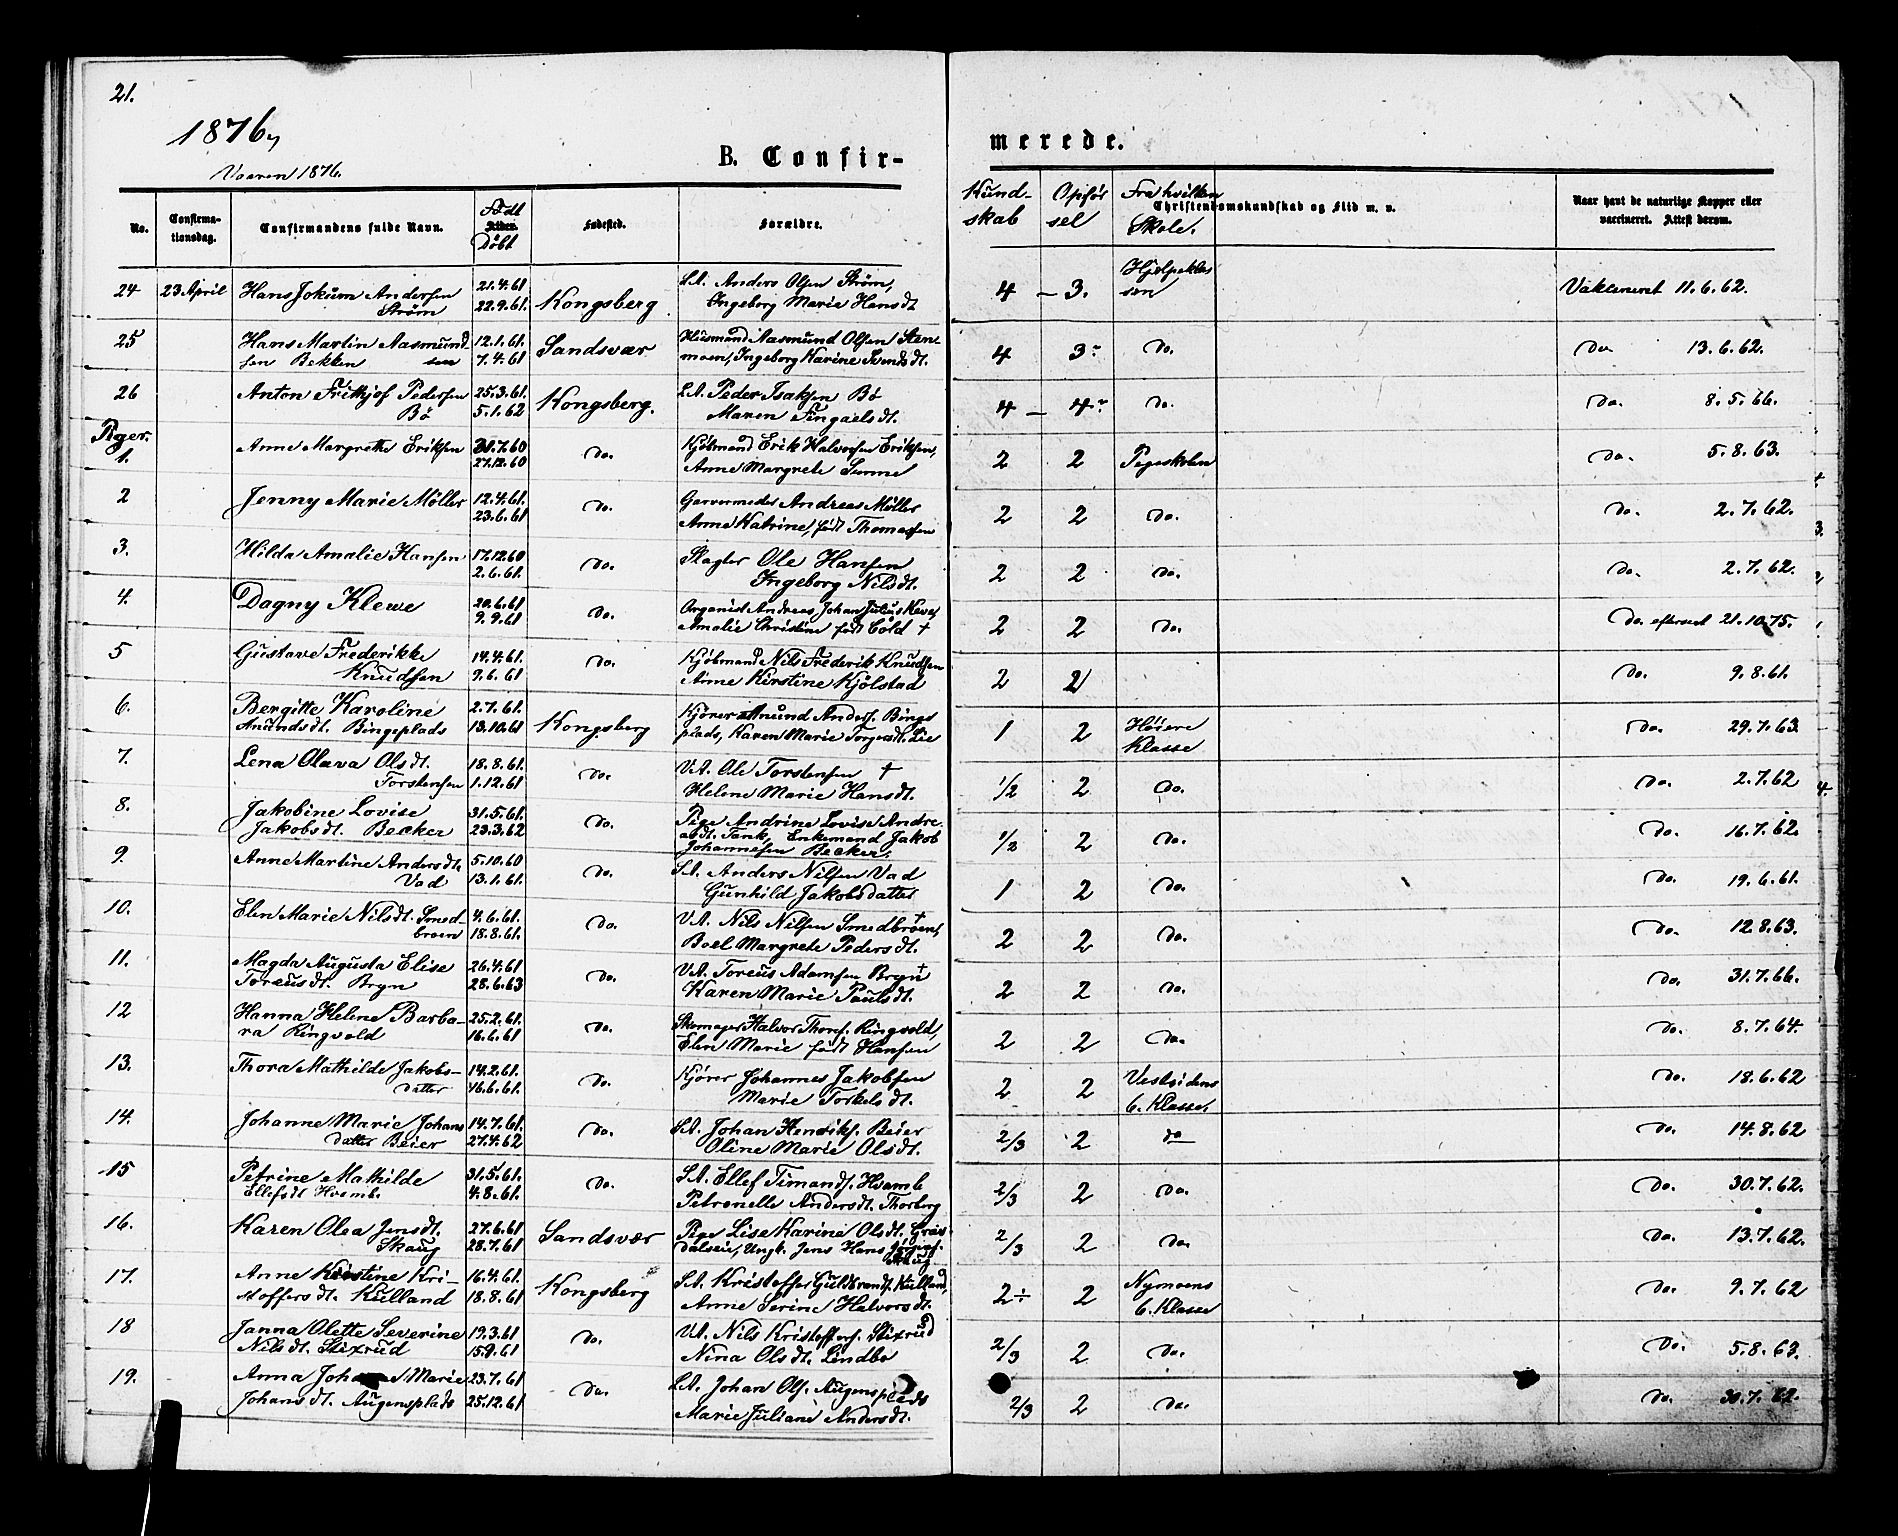 21.
1876,
B. Confir-
merede.
Vaaren 1876.
No.
Confirma-
tionsdag.
Confirmandens fulde Navn.
Født
Alder.
Døbt
Fødested.
Forældre.
Kund-
skab
Opfør
sel
Fra hvilken
Skole.
Christendomskundskab og Flid m. v.
Naar havt de naturlige Kopper eller
vaccineret. Attest derom.
24 23 April Hans Jokum Andersen 21.4.61 Kongsberg S.A. Anders Olsen Strøm, 4 – 3. Hjelpeklas Vakcineret 11.6.62.
Strøm 22.9.61. Ingeborg Marie Hansdt sen
25 Hans Martin Aasmund 12.1.61. Sandsvær Husmand Aasmund Olsen Sten 4 3- Do. Do 13.6.62.
sen Bekken 7.4.61 moen, Ingeborg Karine Svendsdt.
26 Anton Frithjof Pedersen 25.3.61. Kongsberg. S.A. Peder Isaksen Bø 4 – 4- Do. Do. 8.5.66.
Bø 5.1.62 Maren Fingaelsdt.
Piger.
1. Anne Margrethe Eriksen 31.7.60 Do. Kjøbmand Erik Halvorsen Eriksen, 2 2 Pigeskolen Do. 5.8.63.
27.12.60 Anne Margrete Sunne
2 Jenny Marie Møller 12.4.61. Do. Garvermester Andreas Møller 2 2 Do. Do. 2.7.62.
23.6.61 Anne Katrine, født Thomassen
3. Hilda Amalie Hansen 17.12.60 Do. Slagter Ole Hansen 2 2 Do. Do. 2.7.62.
2.6.61. Ingeborg Nilsdt.
4. Dagny Klewe 20.6.61 Do. Organist Andreas Johan Julius Klewe, 2 2 Do. Do. efterset 21.10.75.
9.9.61 Amalie Christine født Cold †
5 Gustave Frederikke 14.4.61. Do. Kjøbmand Nils Frederik Knudsen 2 2 Do. 9.8.61.
Knudsen 9.6.61 Anne Kirstine Kjølstad
6. Bergitte Karoline 2.7.61. Kongsberg Kjører Anund Anders. Binges 1 2 Høiere Do. 29.7.63.
Anundsdt. Bingeplads 13.10.61 plads, Karen Marie Torgersdt. Lie Klasse
7. Lena Olava Olsdt. 18.8.61. Do. V.A. Ole Torstensen † 1/2 2 Do. Do. 2.7.62
Torstensen 1.12.61 Helene Marie Hansdt.
8. Jakobine Lovise 31.5.61. Do. Pige Andrine Lovise Andre- 1/2 2 Do. Do. 16.7.62.
Jakobsdt. Becker 23.3.62 asdt. Tank, Enkemand Jakob
Johannesen Becker.
9. Anne Martine Andersdt. 5.10.60 Do. S.A. Anders Nilsen Vad 1 2 Do. Do. 19.6.61.
Vad 13.1.61. Gunhild Jakobsdatter
10. Elen Marie Nilsdt. Smed- 4.6.61. Do. V.A. Nils Nilsen Smedbroen,† 2 2 Do. Do. 12.8.63.
broen 18.8.61. Boel Margrete Pedersdt.
11. Magda Augusta Elise 26.4.61 Do. V.A. Toreus Adamsen Bryn† 2 2 Do. Do. 31.7.66.
Toreusdt. Bryn 28.6.63 Karen Marie Paulsdt.
12 Hanna Helene Barba- 25.2.61. Do. Skomager Halvor Thors. Ringvold, 2 2 Do. Do. 8.7.64.
ra Ringvold 16.6.61 Elen Marie født Hansen
13. Thora Mathilde Jakobs- 14.2.61. Do. Kjører Johannes Jakobsen 2 2 Vestsidens Do. 18.6.62
datter 16.6.61. Marie Torkelsdt. 6. Klasse.
14. Johanne Marie Johans 14.7.61. Do. S.A. Johan Henriks. Beier 2/3 2 do Do. 14.8.62
datter Beier 27.4.62 Oline Marie Olsdt.
15 Petrine Mathilde 31.5.61. Do. S.A. Ellef Timands. Hvamb 2/3 2 Do. Do. 30.7.62.
Ellefsdt Hvamb. 4.8.61. Petronelle Andersdt. Thorberg
16. Karen Olea Jensdt. 27.6.61 Sandsvær Pige Lise Karine Olsdt. Græs- 2/3 2 Do. Do. 13.7.62.
Skaug 28.7.61 dalseie, Ungk. Jens Hans Jørgens.
Skaug
17. Anne Kirstine Kri- 16.4.61. Kongsberg S.A. Kristoffer Guldbrands. Kulland, 2÷ 2 Nymoens Do. 9.7.62
stoffersdt. Kulland 18.8.61 Anne Serine Halvorsdt. 6. Klasse
18 Janna Olette Severine 19.3.61 Do. V.A. Nils Kristoffers. Stixrud 2/3 2 Do. Do. 5.8.63.
Nilsdt. Stixrud 15.9.61 Nina Olsdt. Lindbo
19. Anna Johanne Marie 23.7.61 Do. S.A. Johan Ols. Augensplads 2/3 2 Do. Do. 30.7.62.
Johansdt. Augensplads 25.12.61 Marie Juliane Andersdt.